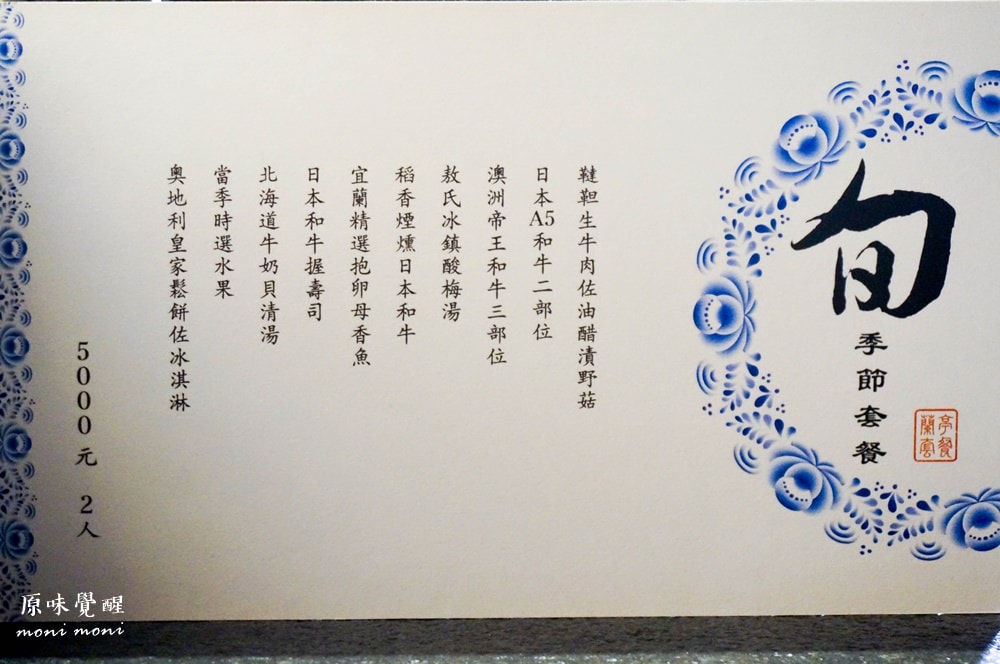 旬
季節套餐
蘭亭套餐
韃靼生牛肉佐油醋漬野菇
日本A5和牛二部位
澳洲帝王和牛三部位
敖氏冰鎮酸梅湯
稻香煙燻日本和牛
宜蘭精選抱卵母香魚
日本和牛握壽司
北海道牛奶貝清湯
當季時選水果
奧地利皇家鬆餅佐冰淇淋
5000元 2人
原味覺醒
moni moni